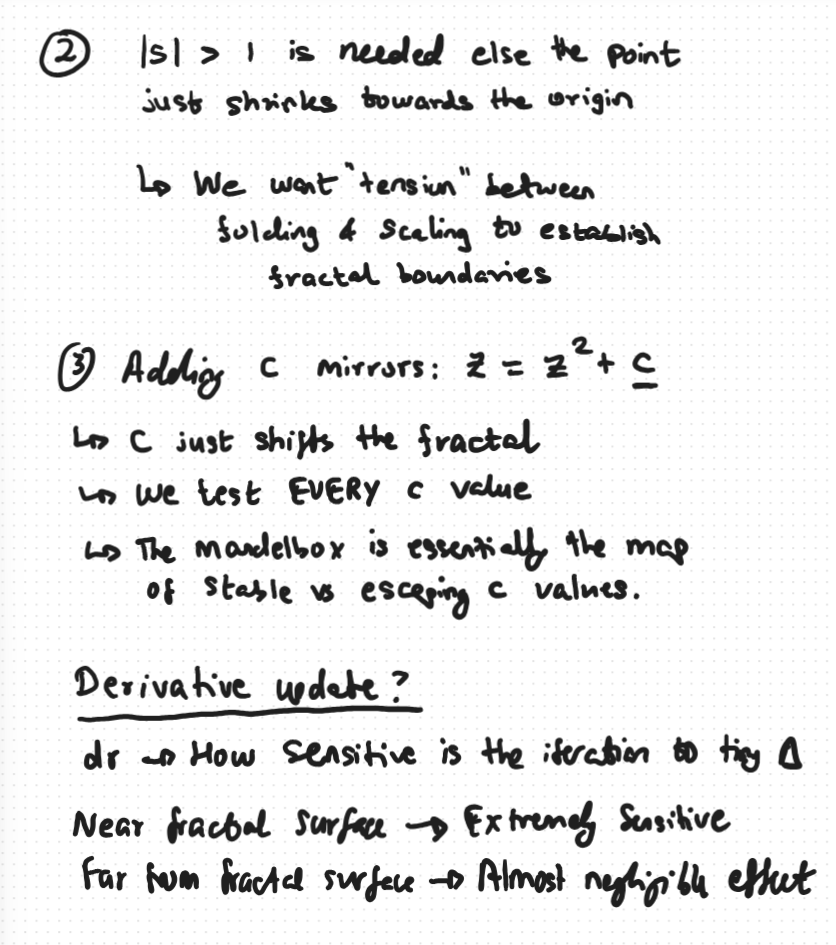 ② |s| > 1 is needed else the point
just shrinks towards the origin
↳ We want "tension" between
folding & scaling to establish
fractal boundaries
③ Adding c mirrors: z = z² + c
↳ C just shifts the fractal
↳ We test EVERY c value
↳ The mandelbox is essentially the map
of stable vs escaping c values.
Derivative update?
dr → How sensitive is the iteration to tiny Δ
Near fractal surface → Extremely sensitive
Far from fractal surface → Almost negligible effect